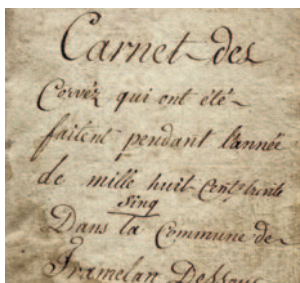 Carnet des
Corvéz qui ont été
faitent pendant l'année
de mille huit Cents trente
Sinq
Dans la Commune de
Tramelan Dessous